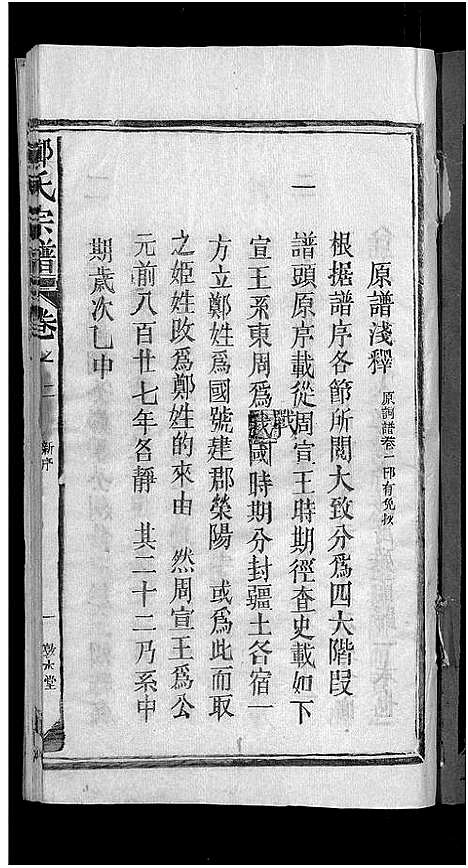 原譜淺釋 原詞譜卷一即有免敘
根据譜序各節所閱大致分為四大階段
一
譜頭原序載從周宣王時期徑查史載如下
宣王系東周為戰國時期分封疆土各宿一
方立鄭姓為國號建郡滎陽 或為此而取
之姬姓改為鄭姓的來由 然周宣王為公
元前八百廿七年名靜 其二十二乃系中
期歲次己申
鄭氏宗譜 卷之二 新序 一 敦本堂